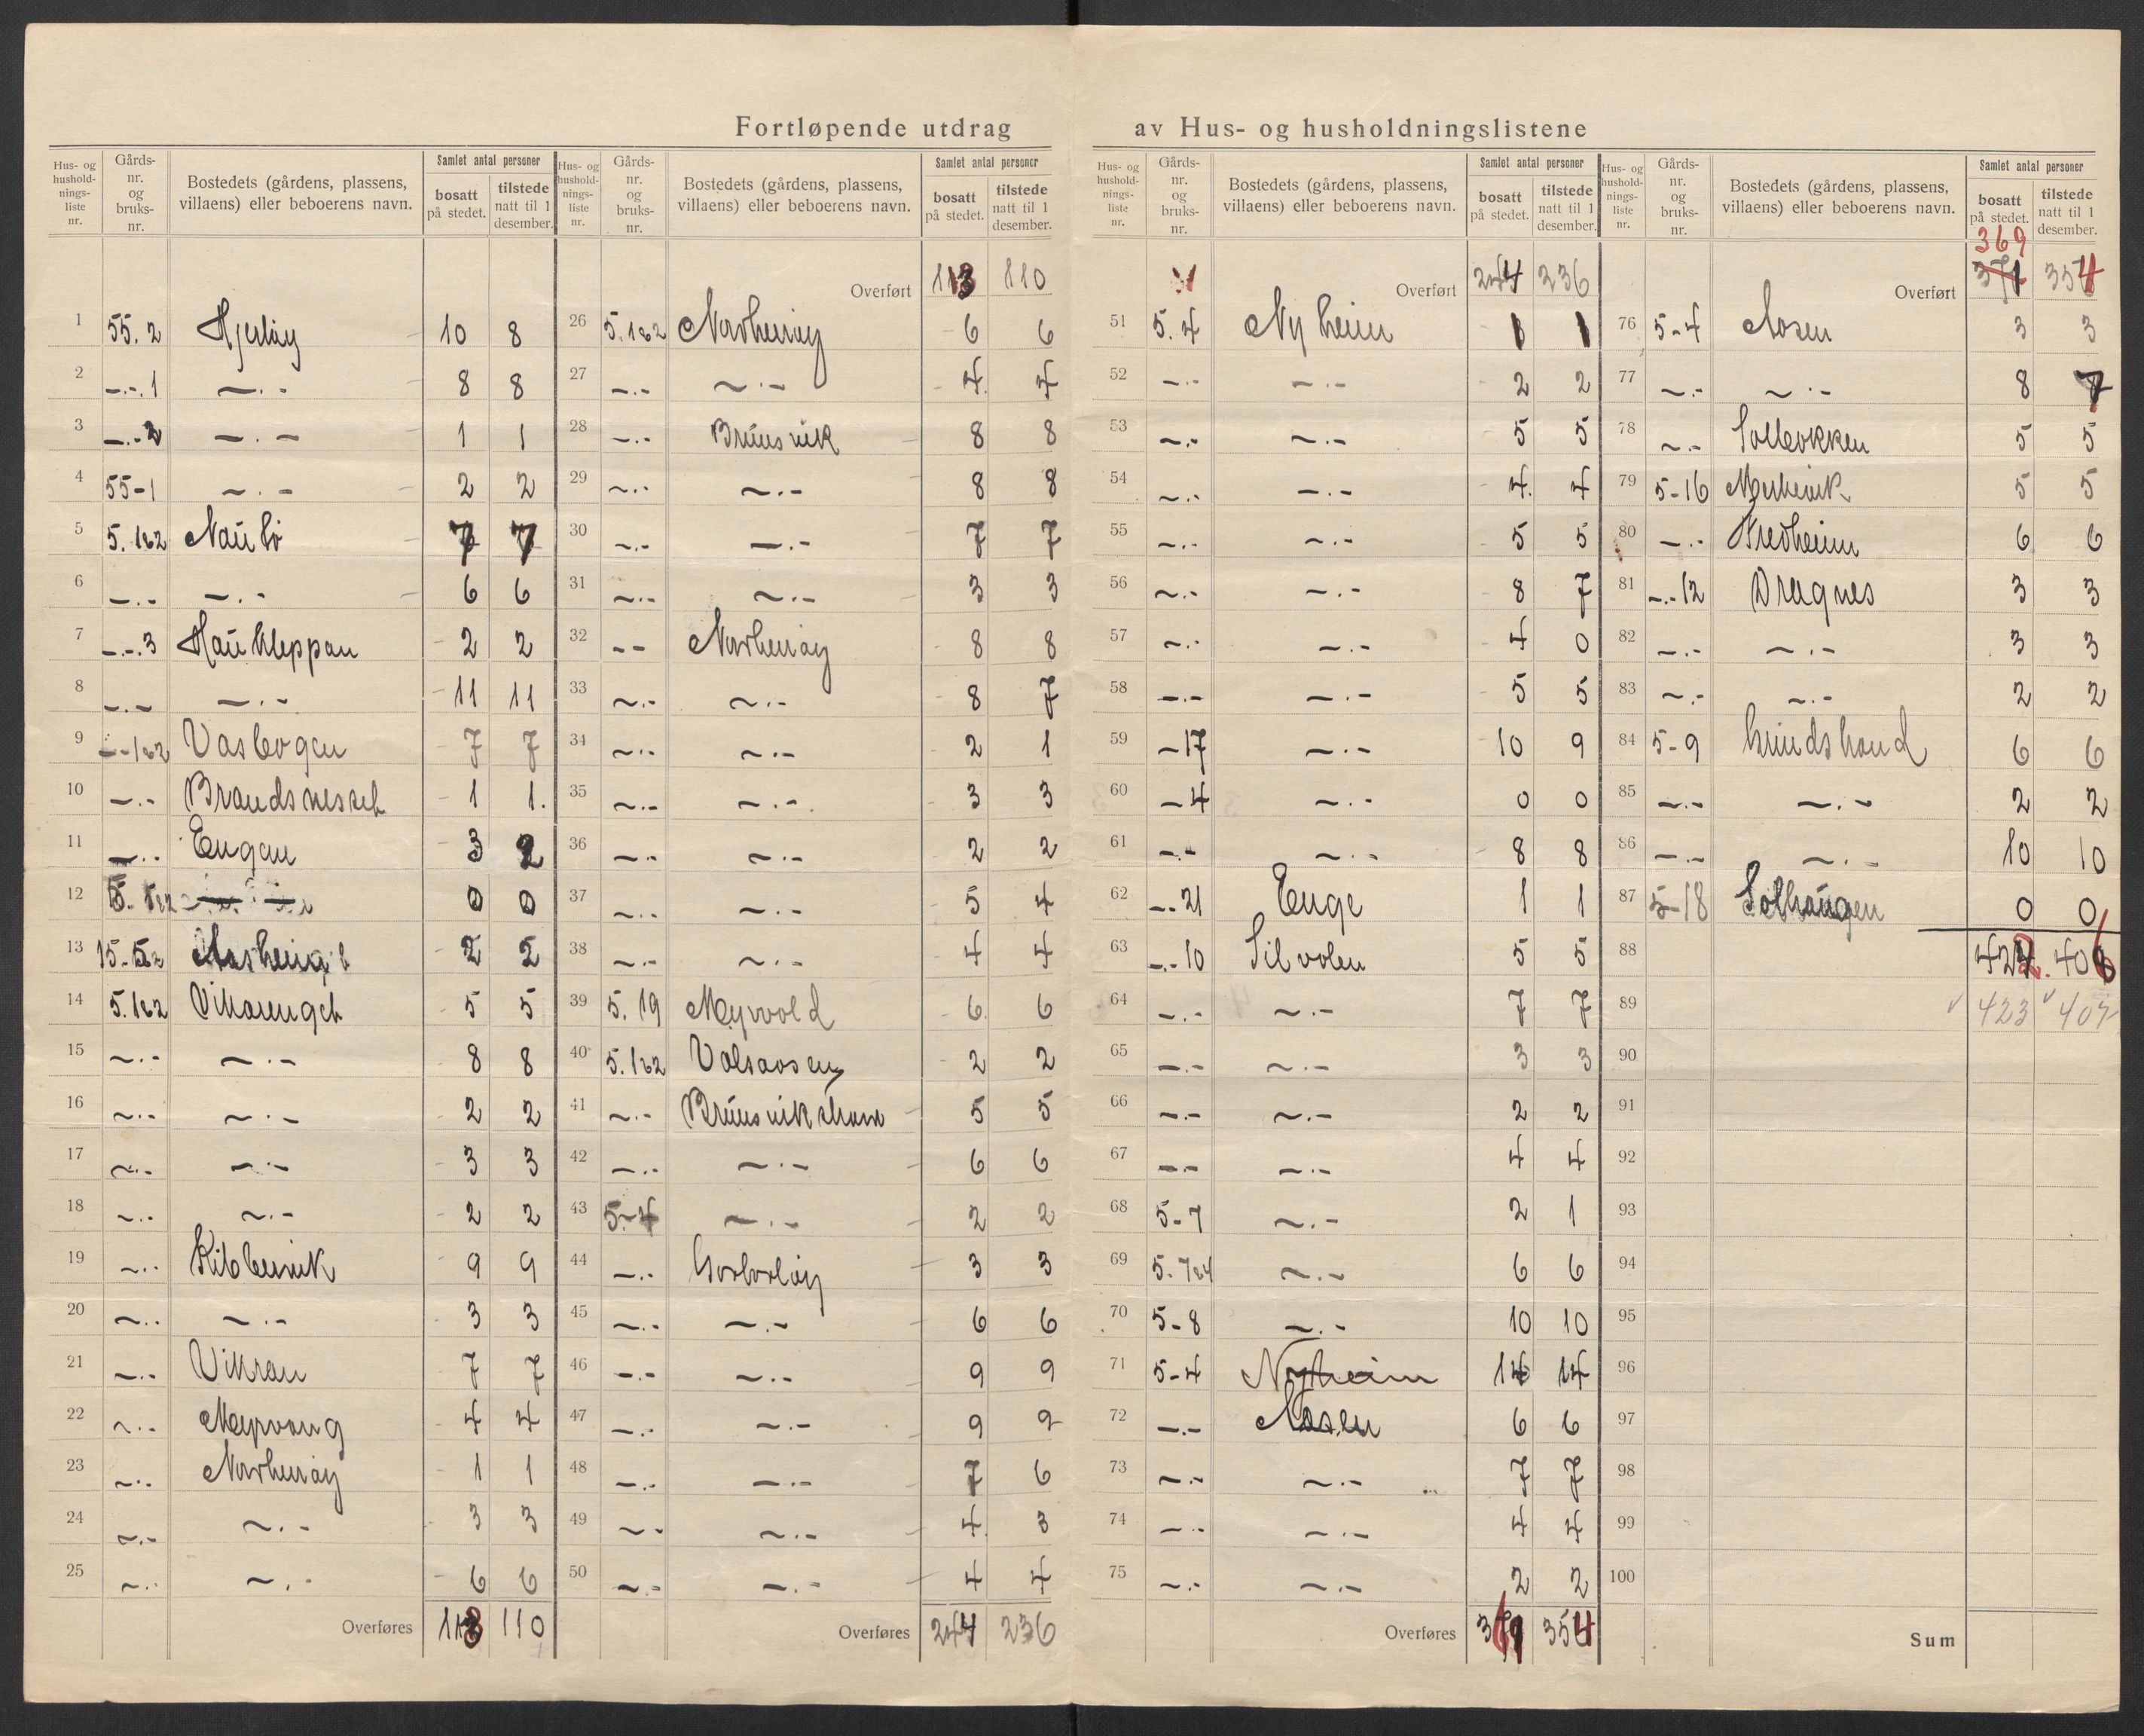 Fortløpende utdrag av Hus- og husholdningslistene
Hus- og hushold-nings-liste nr. Gårds-nr. og bruks-nr. Bostedets (gårdens, plassens, villaens) eller beboerens navn. Samlet antal personer bosatt på stedet. tilstede natt til 1 desember.
1 55. 2 10 8
2 -.-.1 -.- 8 8
3 -.-2 -.- 1 1
4 55-1 -.- 2 2
5 5. 1&2 7 7
6 -.- -.- 6 6
7 -.-.3 Haukleppan 2 2
8 -.- -.- 11 11
9 -.-1&2 Vasbogen 7 7
10 -.- Brandsnesset 1 1.
11 -.- Engan 3 2
12 0 0
13 2 2
14 5.1&2 Vikarenget 5 5
15 -.- -.- 8 8
16 -.- -.- 2 2
17 -.- -.- 3 3
18 -.- -.- 2 2
19 -.- 9 9
20 -.- -.- 3 3
21 -.- Vikran 7 7
22 -.- 4 4
23 -.- 1 1
24 -.- -.- 3 3
25 -.- -.- 6 6
Overføres 113 110
Hus- og hushold-nings-liste nr. Gårds-nr. og bruks-nr. Bostedets (gårdens, plassens, villaens) eller beboerens navn. Samlet antal personer bosatt på stedet. tilstede natt til 1 desember.
Overført 113 110
26 5.1&2 6 6
27 -.- -.- 4 4
28 -.- Bruusvik 8 8
29 -.- -.- 8 8
30 -.- -.- 7 7
31 -.- -.- 3 3
32 -- 8 8
33 -.- -.- 8 7
34 -.- -.- 2 1
35 -.- -.- 3 3
36 -.- -.- 2 2
37 -.- -.- 5 4
38 -.- -.- 4 4
39 5. 19 Myrvold 6 6
40 5.1&2 Valsaosen 2 2
41 -.- 5 5
42 -.- -.- 6 6
43 5-4 -.- 2 2
44 -.- 3 3
45 -.- -.- 6 6
46 -.- -.- 9 9
47 -.- -.- 9 9
48 -.- -.- 7 6
49 -.- -.- 4 3
50 -.- -.- 4 4
Overføres 244 236
Hus- og hushold-nings-liste nr. Gårds-nr. og bruks-nr. Bostedets (gårdens, plassens, villaens) eller beboerens navn. Samlet antal personer bosatt på stedet. tilstede natt til 1 desember.
Overført 244 236
51 5. 4 Nyheim 1 1
52 -.- -.- 2 2
53 -.- -.- 5 5
54 -.- -.- 4 4
55 -.- -.- 5 5
56 -.- -.- 8 7
57 -.- -.- 4 0
58 -.- -.- 5 5
59 -17 -.- 10 9
60 -4 -.- 0 0
61 -.- -.- 8 8
62 -.-21 Enge 1 1
63 -.-10 Silvolen 5 5
64 -.- -.- 7 7
65 -.- -.- 3 3
66 -.- -.- 2 2
67 -.- -.- 4 4
68 5-7 -.- 2 1
69 5.7&4 -.- 6 6
70 5-8 -.- 10 10
71 5-4 Nyheim 14 14
72 -.- Aasen 6 6
73 -.- -.- 7 7
74 -.- -.- 4 4
75 -.- -.- 2 2
Overføres 369 354
Hus- og hushold-nings-liste nr. Gårds-nr. og bruks-nr. Bostedets (gårdens, plassens, villaens) eller beboerens navn. Samlet antal personer bosatt på stedet. tilstede natt til 1 desember.
369
Overført 371 354
76 5-4 Aasen 3 3
77 -.- -.- 8 7
78 -.- Solbakken 5 5
79 5-16 5 5
80 -.- Fredheim 6 6
81 -.-12 Dragnes 3 3
82 -.- -.- 3 3
83 -.- -.- 2 2
84 5-9 Grindstrand 6 6
85 -.- -.- 2 2
86 -.- -.- 10 10
87 5-18 Solhaugen 0 0
88 422. 406
89 423 407
90
91
92
93
94
95
96
97
98
99
100
Sum